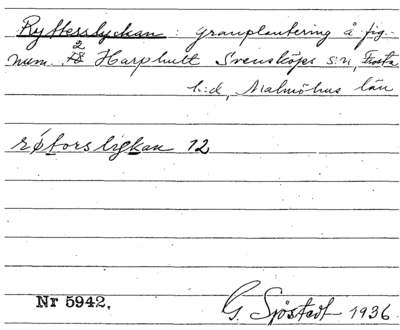 Ryttersslyckan : granplantering å fig.
num. 2 Harphult Svensköps s:n, Frosta
h:d, Malmöhus län
12
Nr 5942.
G. Sjöstedt 1936.